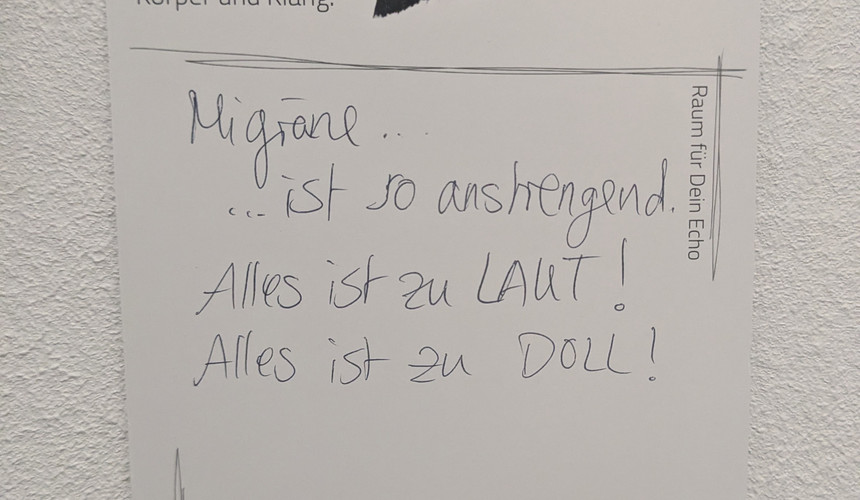 Körper und Klang.
Raum für Dein Echo
Migräne ...
... ist so anstrengend.
Alles ist zu LAUT!
Alles ist zu DOLL!